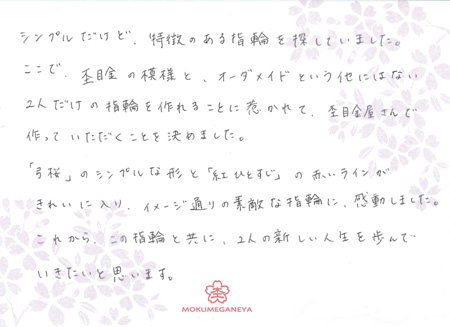 シンプルだけど、特徴のある指輪を探していました。
ここで、杢目金の模様と、オーダメイドという他にはない
2人だけの指輪を作れることに惹かれて、杢目金屋さんで
作っていただくことを決めました。
「弓桜」のシンプルな形と「紅ひとすじ」の赤いラインが
きれいに入り、イメージ通りの素敵な指輪に、感動しました。
これから、この指輪と共に、2人の新しい人生を歩んで
いきたいと思います。
MOKUMEGANEYA